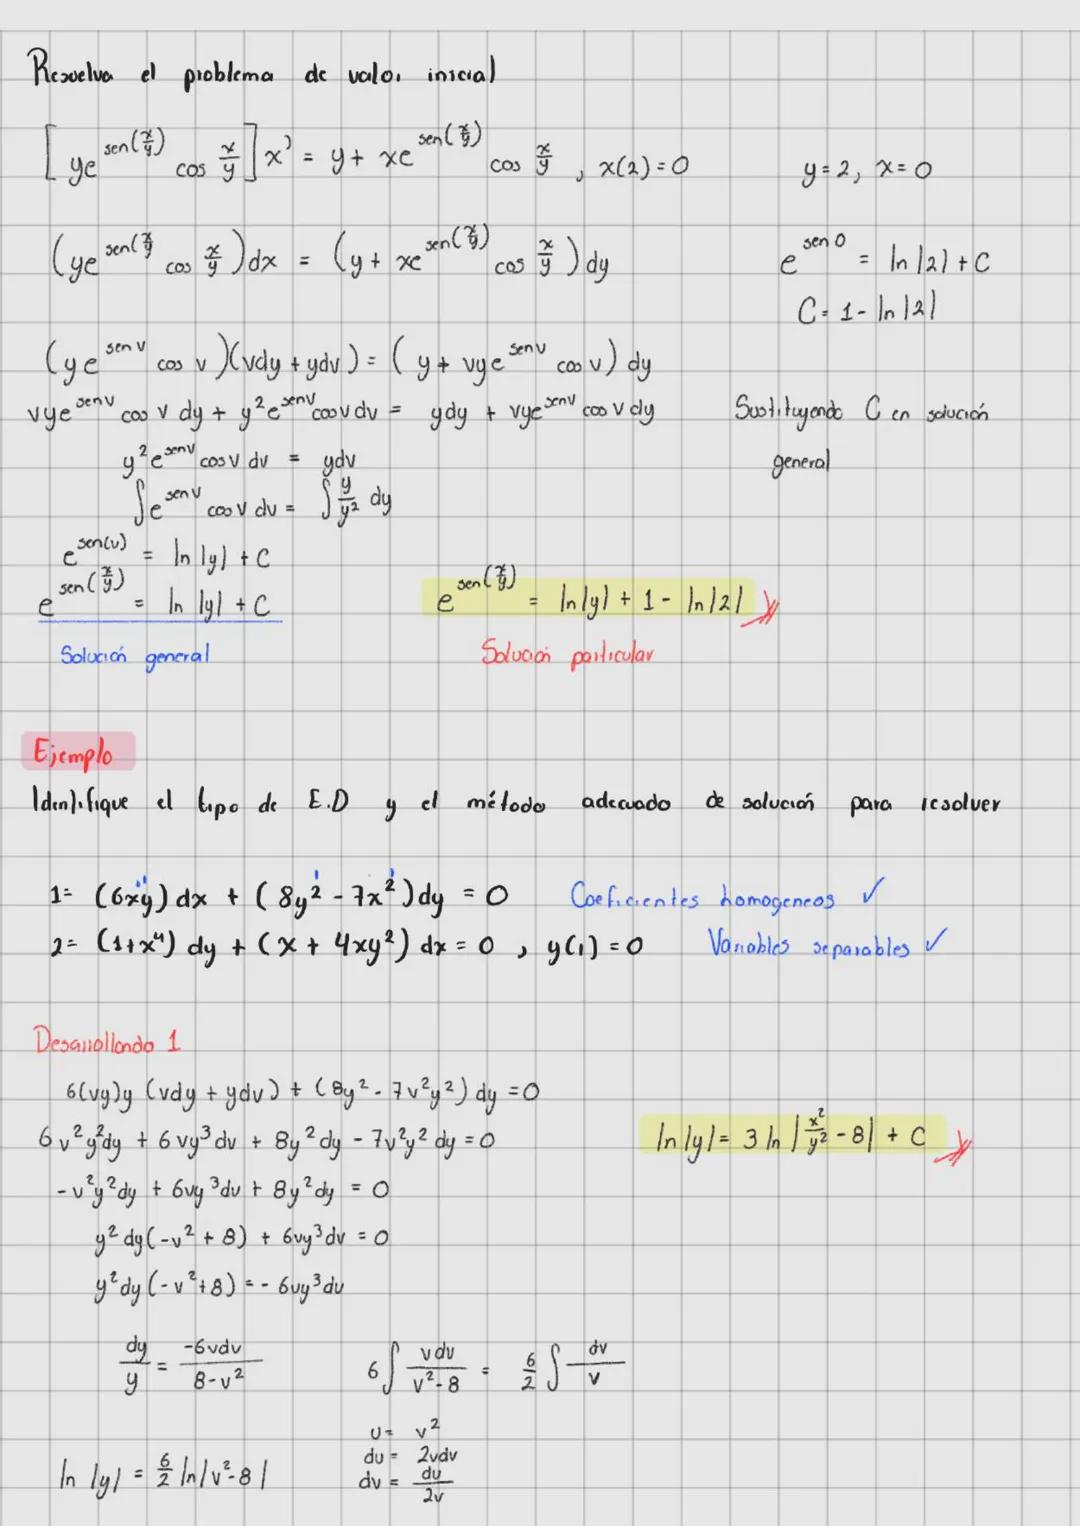 Resuelva el problema de valor inicial
[ye^{sen(x/y)} cos x/y] x' = y + xe^{sen(x/y)} cos x/y , x(2)=0
y=2, x=0
(ye^{sen(x/y} cos x/y)dx = (y + xe^{sen(x/y)} cos x/y)dy
e^{sen 0} = ln|2| + C
C = 1 - ln|2|
(ye^{sen v} cos v)(vdy + ydv) = (y + vye^{sen v} cos v) dy
vye^{sen v} cos v dy + y²e^{sen v} cos v dv = ydy + vye^{sen v} cos v dy
Sustituyendo C en solución
general
y²e^{sen v} cos v dv = ydv
∫e^{sen v} cos v dv = ∫ y/y² dy
e^{sen(v)} = ln|y| + C
e^{sen(x/y)} = ln|y| + C
Solución general
e^{sen(x/y)} = ln|y| + 1 - ln|2|
Solución particular
Ejemplo
Identifique el tipo de E.D y el método adecuado de solución para resolver
1= (6xy) dx + (8y² - 7x²)dy = 0 Coeficientes homogeneos ✓
2= (1+x⁴) dy + (x + 4xy²) dx = 0 , y(1) = 0 Variables separables ✓
Desarrollando 1
6(vy)y (vdy + ydv) + (8y² - 7v²y²) dy = 0
6v²y²dy + 6vy³dv + 8y²dy - 7v²y² dy = 0
-v²y²dy + 6vy³dv + 8y²dy = 0
y² dy(-v² + 8) + 6vy³dv = 0
y²dy(-v²+8) = - 6vy³dv
ln|y| = 3 ln|x²/y² - 8| + C
dy/y = -6vdv/8-v²
6∫ vdv/v²-8 = 6/2 ∫ dv/v
u = v²
du = 2vdv
dv = du/2v
ln|y| = 6/2 ln|v²-8|